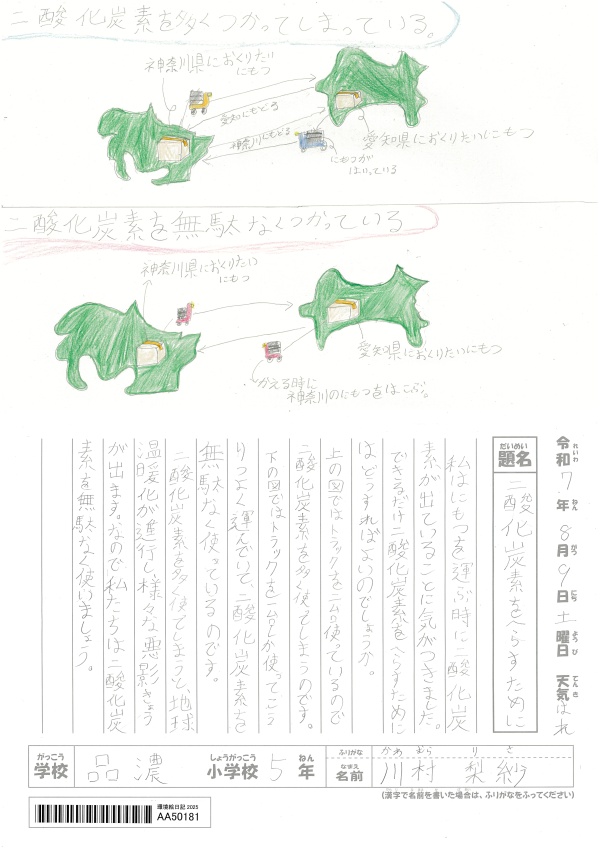 二酸化炭素を多くつかってしまっている。
神奈川県におくりたい
にもつ
愛知にもどる
神奈川にもどる
愛知県におくりたいにもつ
にもつが
はいっている
二酸化炭素を無駄なくつかっている
神奈川県におくりたい
にもつ
愛知県におくりたいにもつ
かえる時に
神奈川のにもつをはこぶ。
令和 れいわ 7年 ねん 8月 がつ 9日 にち 土曜日 ようび 天気 てんき はれ
題名 だいめい 二酸化炭素をへらすために
私はにもつを運ぶ時に二酸化炭
素が出ていることに気がつきました。
できるだけ二酸化炭素をへらすために
はどうすればよいのでしょうか。
上の図ではトラックを二台使っているので
二酸化炭素を多く使ってしまうのです。
下の図ではトラックを一台しか使ってこう
りつよく運んでいて、二酸化炭素を
無駄なく使っているのです。
二酸化炭素を多く使てしまうと、地球
温暖化が進行し様々な悪影きょう
が出ます。なので私たちは二酸化炭
素を無駄なく使いましょう。
がっこう しょうがっこう ねん ふりがな かわ むら り さ
学校 品濃 小学校 5年 なまえ 名前 川村 梨紗
(漢字で名前を書いた場合は、ふりがなをふってください)
環境絵日記 2025
AA50181